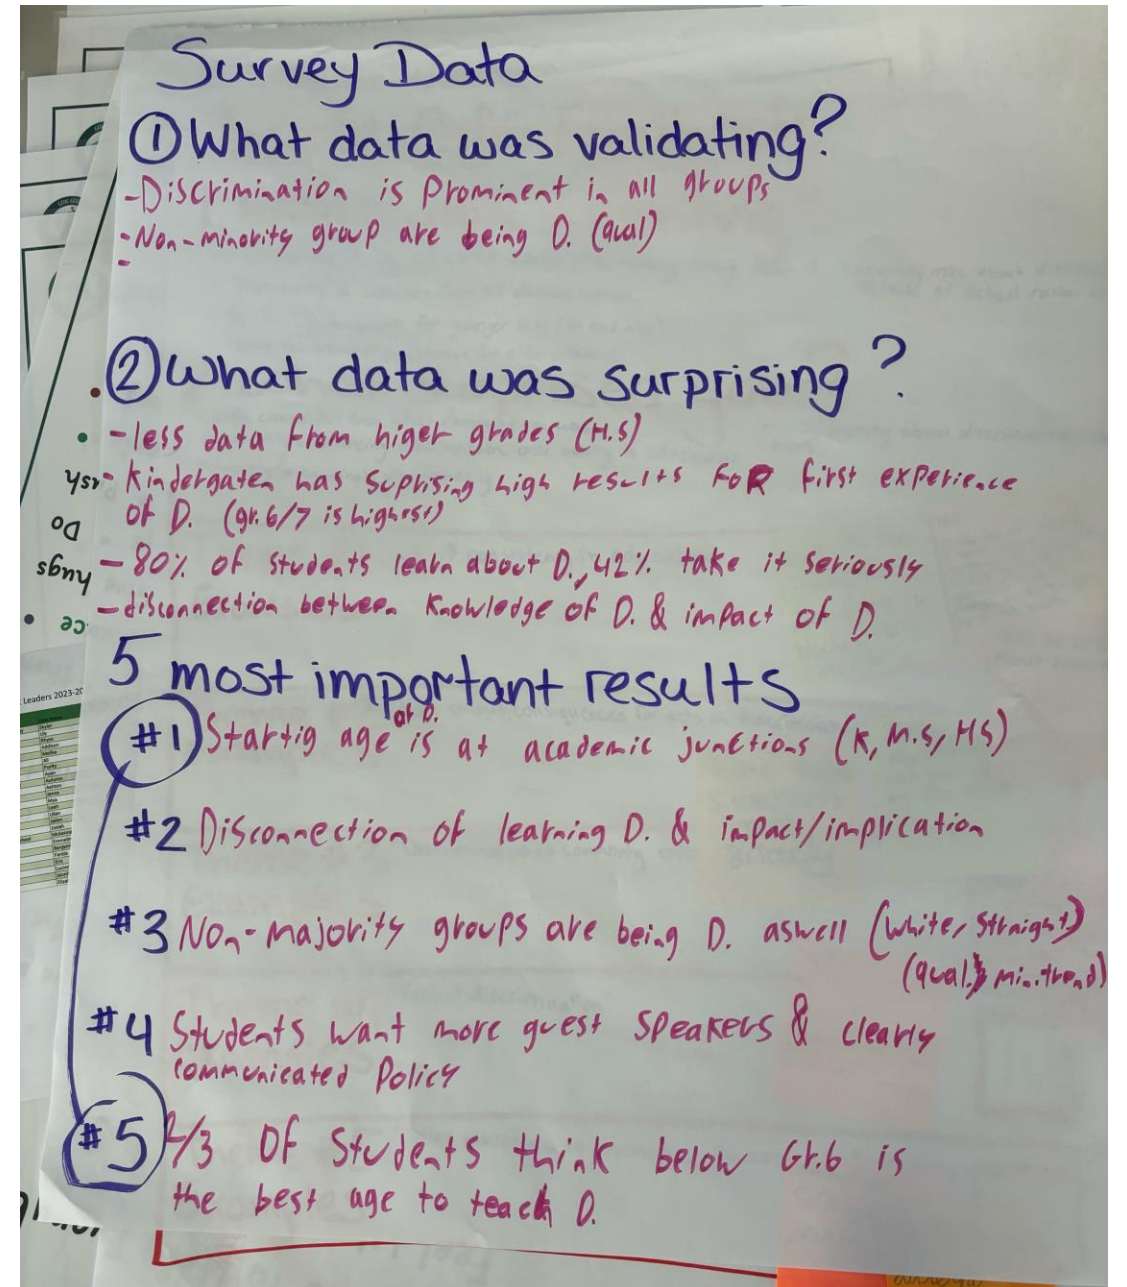 Survey Data
① What data was validating?
- Discrimination is Prominent in all groups
- Non-minority group are being D. (qual)
-
② What data was surprising?
- less data from higer grades (H.S)
- Kindergaten has Suprising high results FOR first experience
of D. (gr. 6/7 is highest)
- 80% of students learn about D., 42% take it seriously
- disconnection between Knowledge of D. & impact of D.
5 most important results
#1 Startig age of D. is at academic junctions (K, M.S, HS)
#2 Disconnection of learning D. & impact/implication
#3 Non-majority groups are being D. aswell (White, Straight)
(qual., min. trend)
#4 Students want more guest speakers & clearly
communicated Policy
#5 2/3 Of Students think below Gr.6 is
the best age to teach D.
Do
hugs
Leaders 2023-20